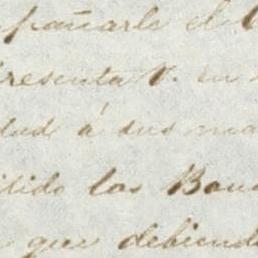 pañarle el
resenta V. en
dad á sus ma
itido los Ban
que debiend